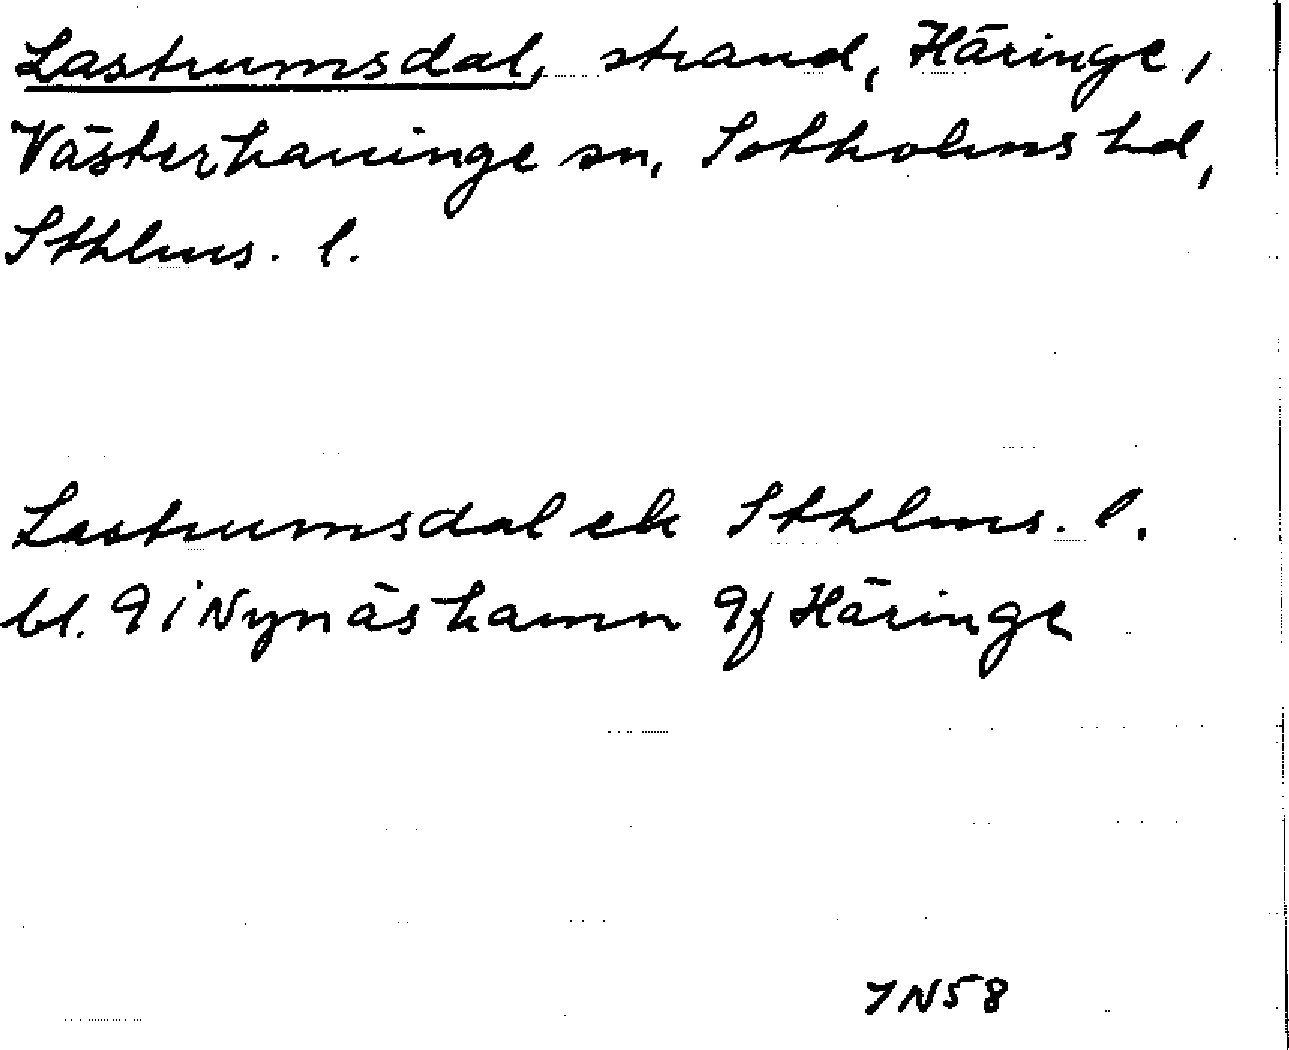 Lastrumsdal, strand, Häringe,
Västerhaninge sn, Sotholms hd,
Sthlms. l.
Lastrumsdal ek Sthlms. l.
bl. 9 i Nynäshamn 9f Häringe
7N58